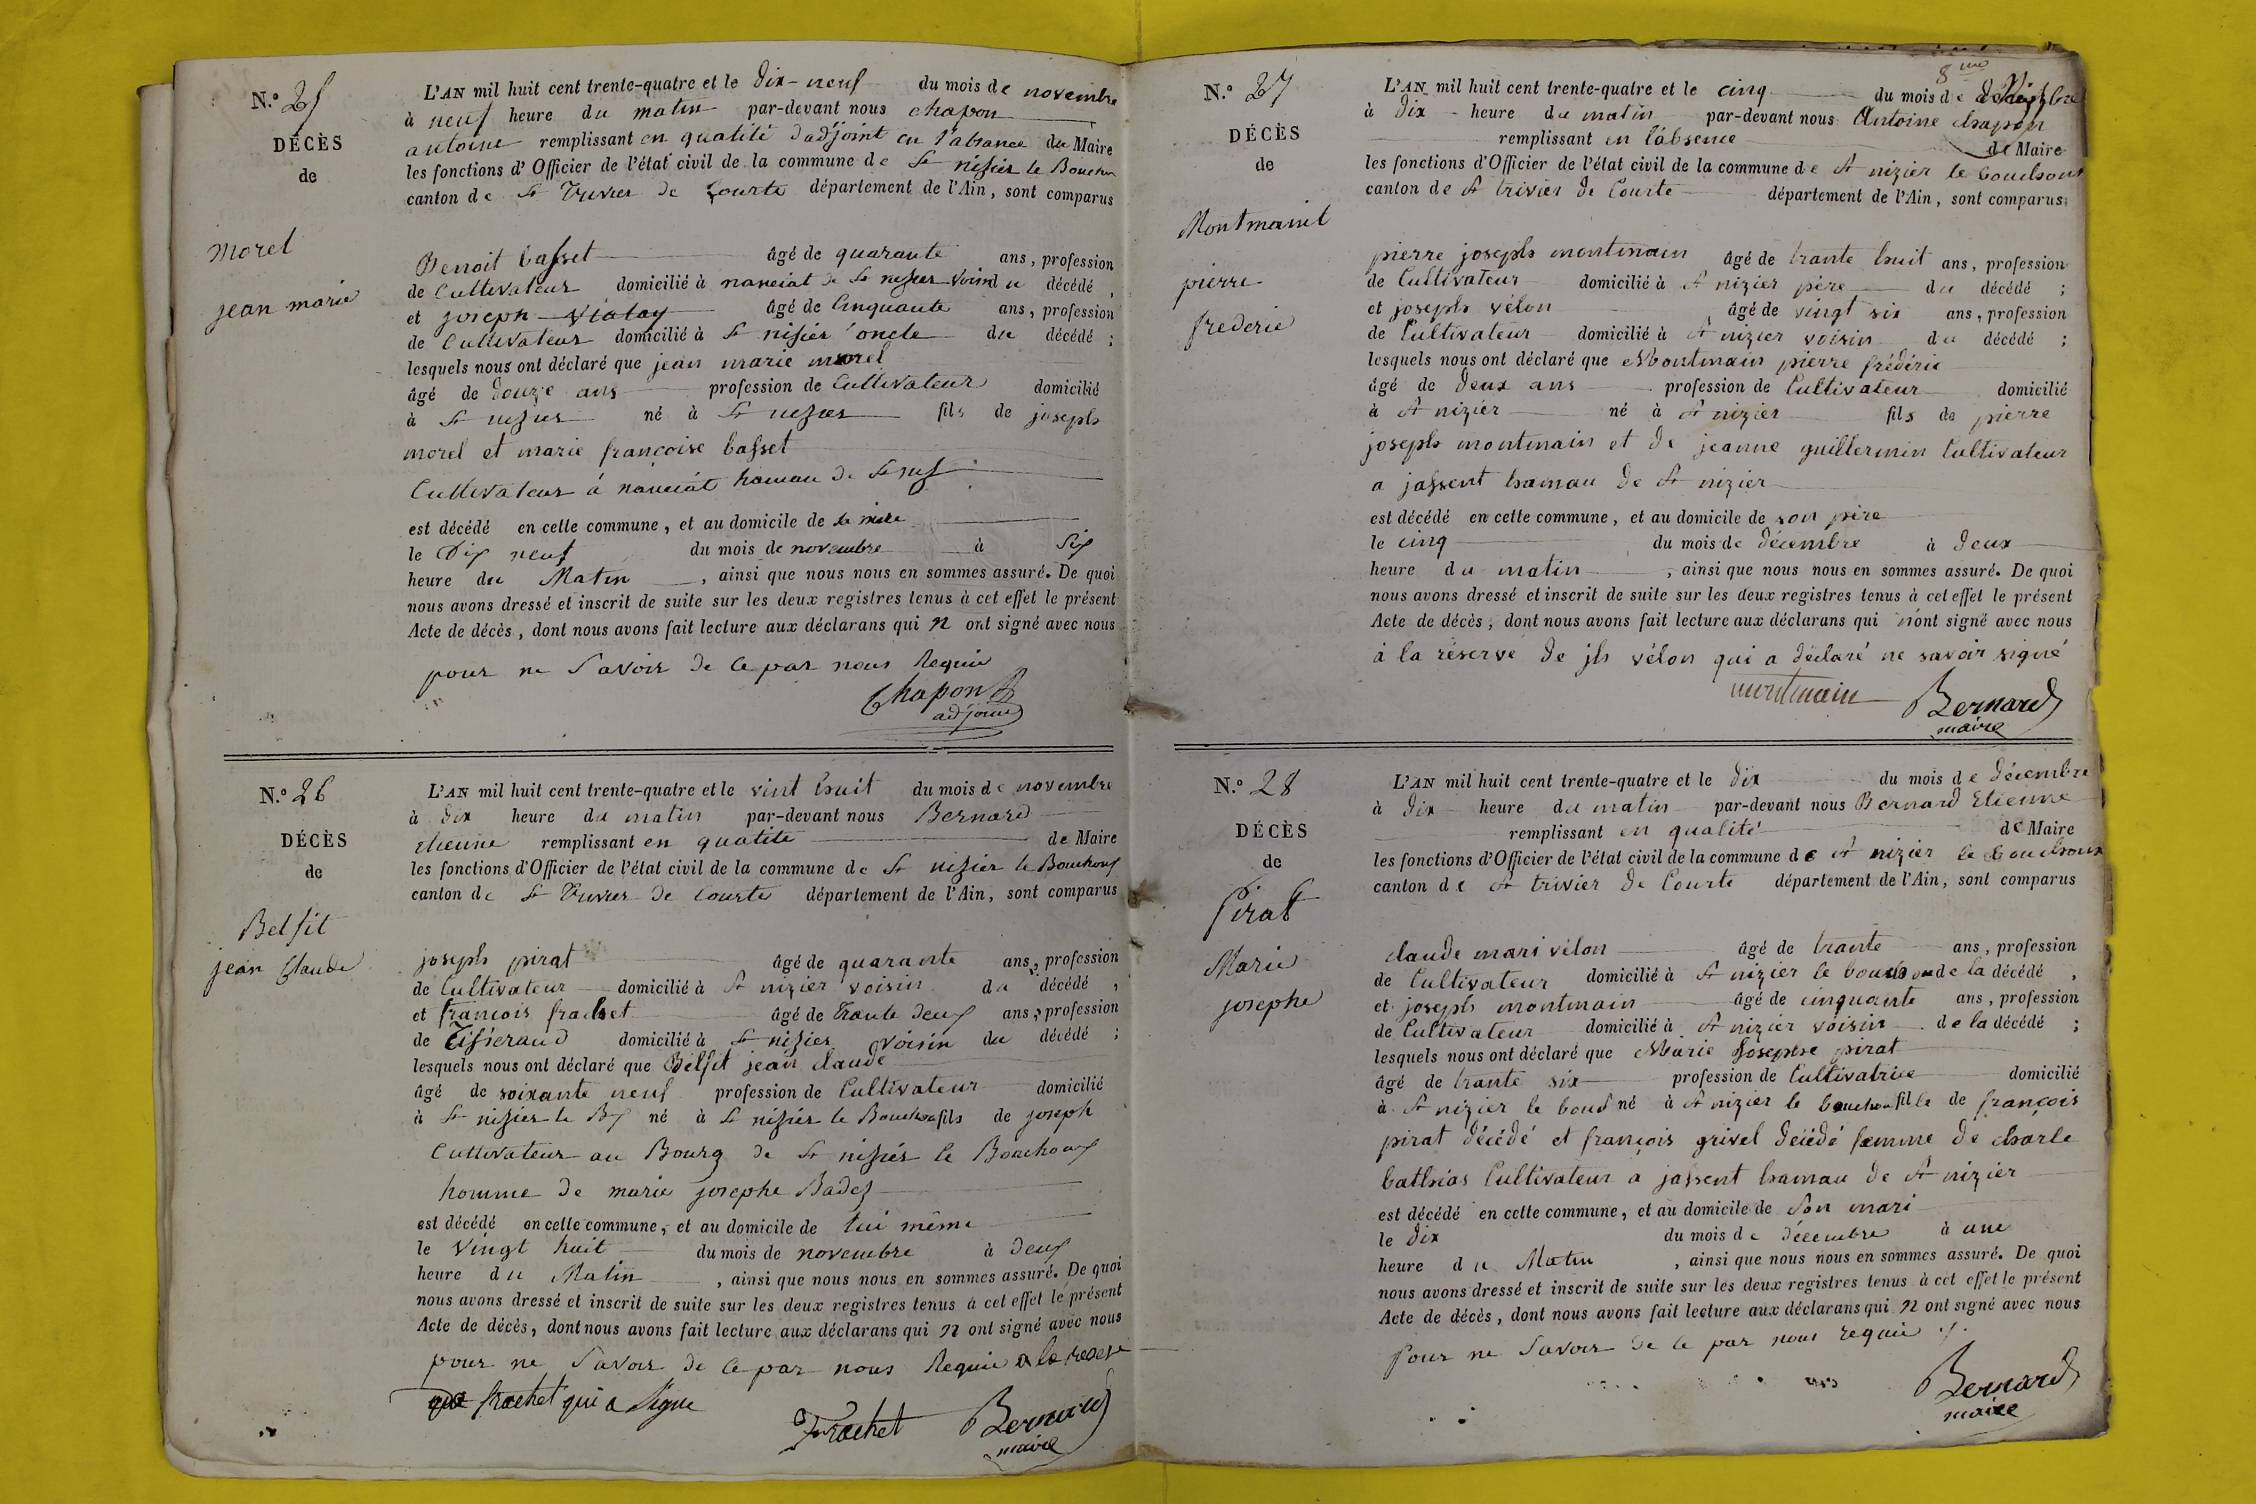 N.º 25
DÉCÈS
de
morel
jean marie
L'AN mil huit cent trente-quatre et le dix-neuf du mois de novembre
à neuf heure du matin par-devant nous chapon
antoine remplissant en qualité d'adjoint en l'absance du Maire
les fonctions d'Officier de l'état civil de la commune de St nisier le Bouchou
canton de St Trivier de Courte département de l'Ain, sont comparus
Benoit basset âgé de quarante ans, profession
de Cultivateur domicilié à manciat de St nisier voisin du décédé,
et joseph vialay âgé de Cinquante ans, profession
de Cultivateur domicilié à St nisier oncle du décédé;
lesquels nous ont déclaré que jean marie morel
âgé de douze ans profession de Cultivateur domicilié
à St nisier né à St nisier fils de joseph
morel et marie françoise basset
Cultivateur à manciat hameau de St
est décédé en cette commune, et au domicile de
le Dix neuf du mois de novembre à Six
heure du Matin, ainsi que nous nous en sommes assuré. De quoi
nous avons dressé et inscrit de suite sur les deux registres tenus à cet effet le présent
Acte de décès, dont nous avons fait lecture aux déclarans qui n ont signé avec nous
pour ne Savoir de ce par nous Requis
Chapon
adjoint
N.º 26
DÉCÈS
de
Belfit
jean Claude
L'AN mil huit cent trente-quatre et le vint huit du mois de novembre
à dix heure du matin par-devant nous Bernard
etienne remplissant en qualité de Maire
les fonctions d'Officier de l'état civil de la commune de St nisier le Bouchoux
canton de St Trivier de Courte département de l'Ain, sont comparus
joseph pirat âgé de quarante ans, profession
de Cultivateur domicilié à St nizier voisin du décédé,
et francois frachet âgé de Trante deux ans, profession
de Tisserand domicilié à St nisier voisin du décédé;
lesquels nous ont déclaré que Belfit jean claude
âgé de soixante neuf profession de Cultivateur domicilié
à St nisier le Bx né à St nisier le Bouchou fils de joseph
Cultivateur au Bourg de St nisier le Bouchoux
homme de marie josephe Badez
est décédé en cette commune, et au domicile de lui même
le Vingt huit du mois de novembre à deux
heure du Matin, ainsi que nous nous en sommes assuré. De quoi
nous avons dressé et inscrit de suite sur les deux registres tenus à cet effet le présent
Acte de décès, dont nous avons fait lecture aux déclarans qui n ont signé avec nous
pour ne Savoir de ce par nous Requis a la reserve
que frachet qui a Signe
Frachet Bernard
maire
N.º 27
DÉCÈS
de
Montmainl
pierre
frederic
L'AN mil huit cent trente-quatre et le cinq du mois de
8me
à dix heure du matin par-devant nous Antoine chapon
remplissant en l'absence de Maire
les fonctions d'Officier de l'état civil de la commune de St nizier le bouchoux
canton de St trivier de Courte département de l'Ain, sont comparus
pierre joseph montmain âgé de trante huit ans, profession
de Cultivateur domicilié à St nizier père du décédé;
et joseph vélon âgé de vingt six ans, profession
de Cultivateur domicilié à St nizier voisin du décédé;
lesquels nous ont déclaré que Montmain pierre frédéric
âgé de deux ans profession de Cultivateur domicilié
à St nizier né à St nizier fils de pierre
joseph montmain et de jeanne guillermin Cultivateur
a jassent hamau de St nizier
est décédé en cette commune, et au domicile de son père
le cinq du mois de décembre à deux
heure du matin, ainsi que nous nous en sommes assuré. De quoi
nous avons dressé et inscrit de suite sur les deux registres tenus à cet effet le présent
Acte de décès, dont nous avons fait lecture aux déclarans qui n'ont signé avec nous
à la réserve de jh vélon qui a déclaré ne savoir signé
montmain Bernard
maire
N.º 28
DÉCÈS
de
Pirat
Marie
josephe
L'AN mil huit cent trente-quatre et le dix du mois de décembre
à dix heure du matin par-devant nous Bernard Etienne
remplissant en qualité de Maire
les fonctions d'Officier de l'état civil de la commune de St nizier le bouchoux
canton de St trivier de Courte département de l'Ain, sont comparus
claude mari vélon âgé de trante ans, profession
de Cultivateur domicilié à St nizier le bouchou de la décédé,
et joseph montmain âgé de cinquante ans, profession
de Cultivateur domicilié à St nizier voisin de la décédé;
lesquels nous ont déclaré que Marie Josephe pirat
âgé de trante six profession de Cultivatrice domicilié
à St nizier le bouc né à St nizier le bouchou fille de françois
pirat décédé et françois grivel décédé femme de charle
bathias Cultivateur a jassent hamau de St nizier
est décédé en cette commune, et au domicile de Son mari
le dix du mois de décembre à une
heure du Matin, ainsi que nous nous en sommes assuré. De quoi
nous avons dressé et inscrit de suite sur les deux registres tenus à cet effet le présent
Acte de décès, dont nous avons fait lecture aux déclarans qui n ont signé avec nous
pour ne Savoir de ce par nous requis
Bernard
maire